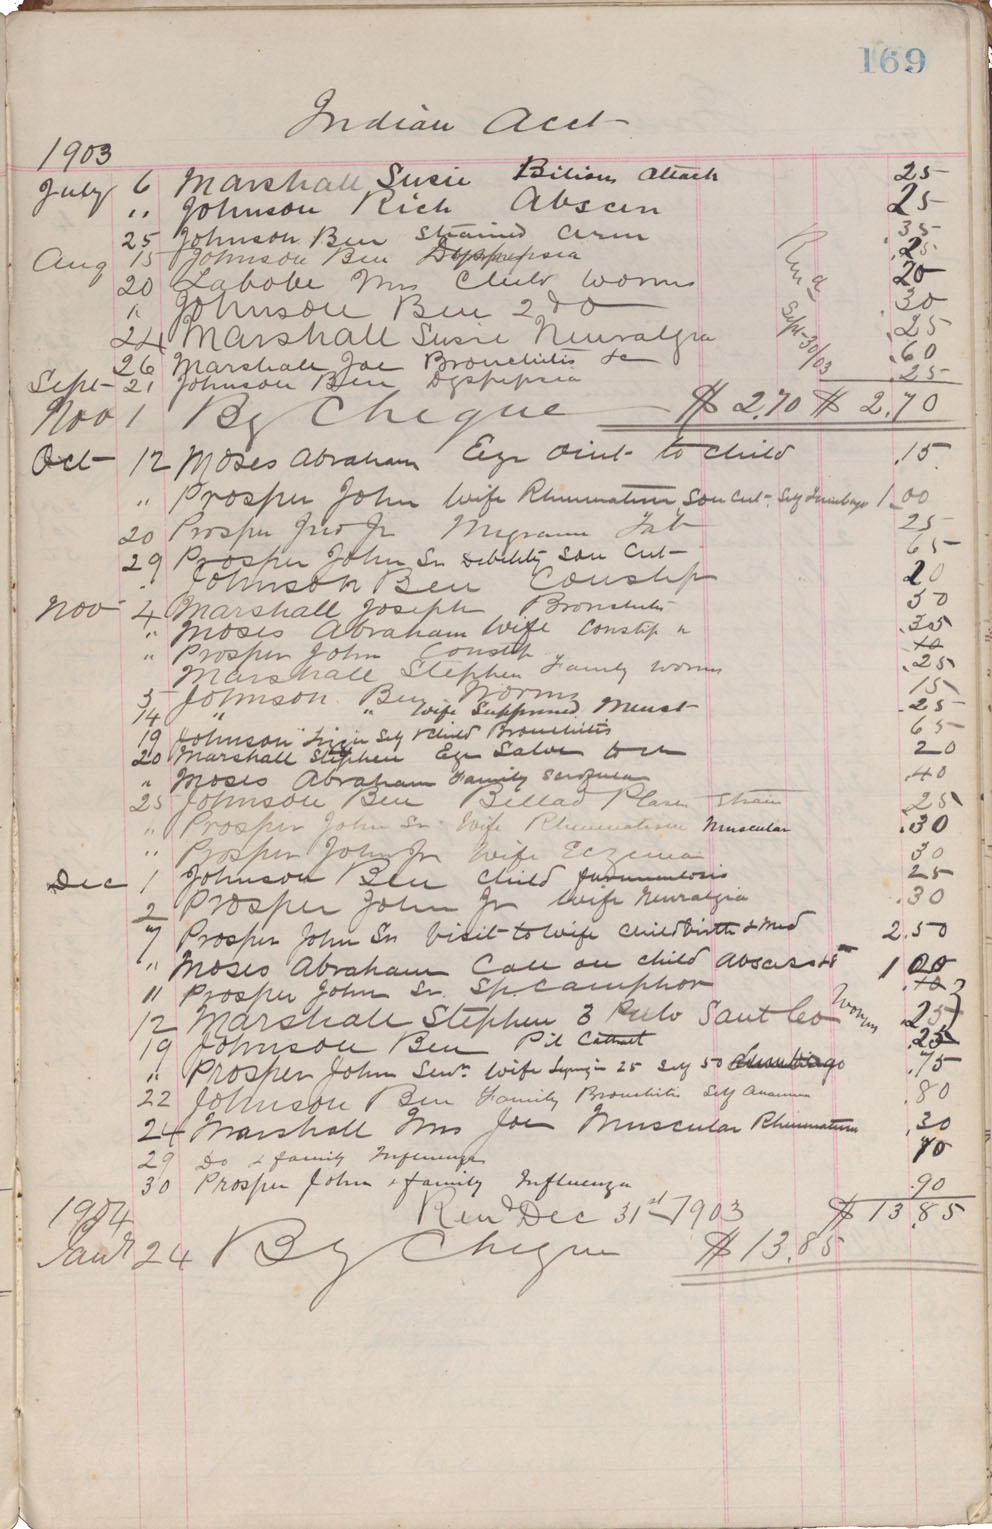 169
Indian Acct
1903
July 6 Marshall Susie Bilious attack 25
" Johnson Rich Abscess 25
25 Johnson Ben Strained arm .35
Aug 15 Johnson Ben Dyspepsia .25
20 Labobe Mrs Child worms 20
" Johnson Ben 2 do 30
24 Marshall Susie Neuralgia .25
26 Marshall Joe Bronchitis &c .60
Sept 21 Johnson Ben Dyspepsia .25
Rend Sept 30/03
Nov 1 By Cheque $ 2.70 $ 2.70
Oct 12 Moses Abraham Eye oint to child .15
" Prosper John Wife Rheumatism Son cut Self Lumbago 1.00
20 Prosper Jno Jr Migraine Tab 25
29 Prosper John Sr Debility Son Cut 65
" Johnson Ben Constip 20
Nov 4 Marshall Joseph Bronchitis 30
" Moses Abraham Wife Constip .35
" Prosper John Constip .10
Marshall Stephen Family worms .25
5 Johnson Ben Worms 15
14 " " Wife Suppressed Menst .25
19 Johnson Self & child Bronchitis 65
20 Marshall Stephen Eye Salve 20
" Moses Abraham Family .40
25 Johnson Ben Bellad Plaser Strain 25
" Prosper John Sr Wife Rheumatism Muscular .30
" Prosper John Jr Wife Eczema 30
Dec 1 Johnson Ben Child furunculosis 25
2 Prosper John Jr Wife Neuralgia .30
7 Prosper John Sr Visit to Wife Childbirth & Med 2.50
" Moses Abraham Call on child Abscess 1 00
" Prosper John Sr. Sp. Camphor .10
12 Marshall Stephen 3 Pulv Sant Co Worms .25
19 Johnson Ben Pil .25
" Prosper John Senr. Wife 25 Self 50 Lumbago .75
22 Johnson Ben Family Bronchitis Self .80
24 Marshall Mrs Joe Muscular Rheumatism .30
29 Do & family Influenza 70
30 Prosper John & family Influenza .90
Rend Dec 31st 1903 $ 13.85
1904
Jany 24 By Cheque $ 13.85